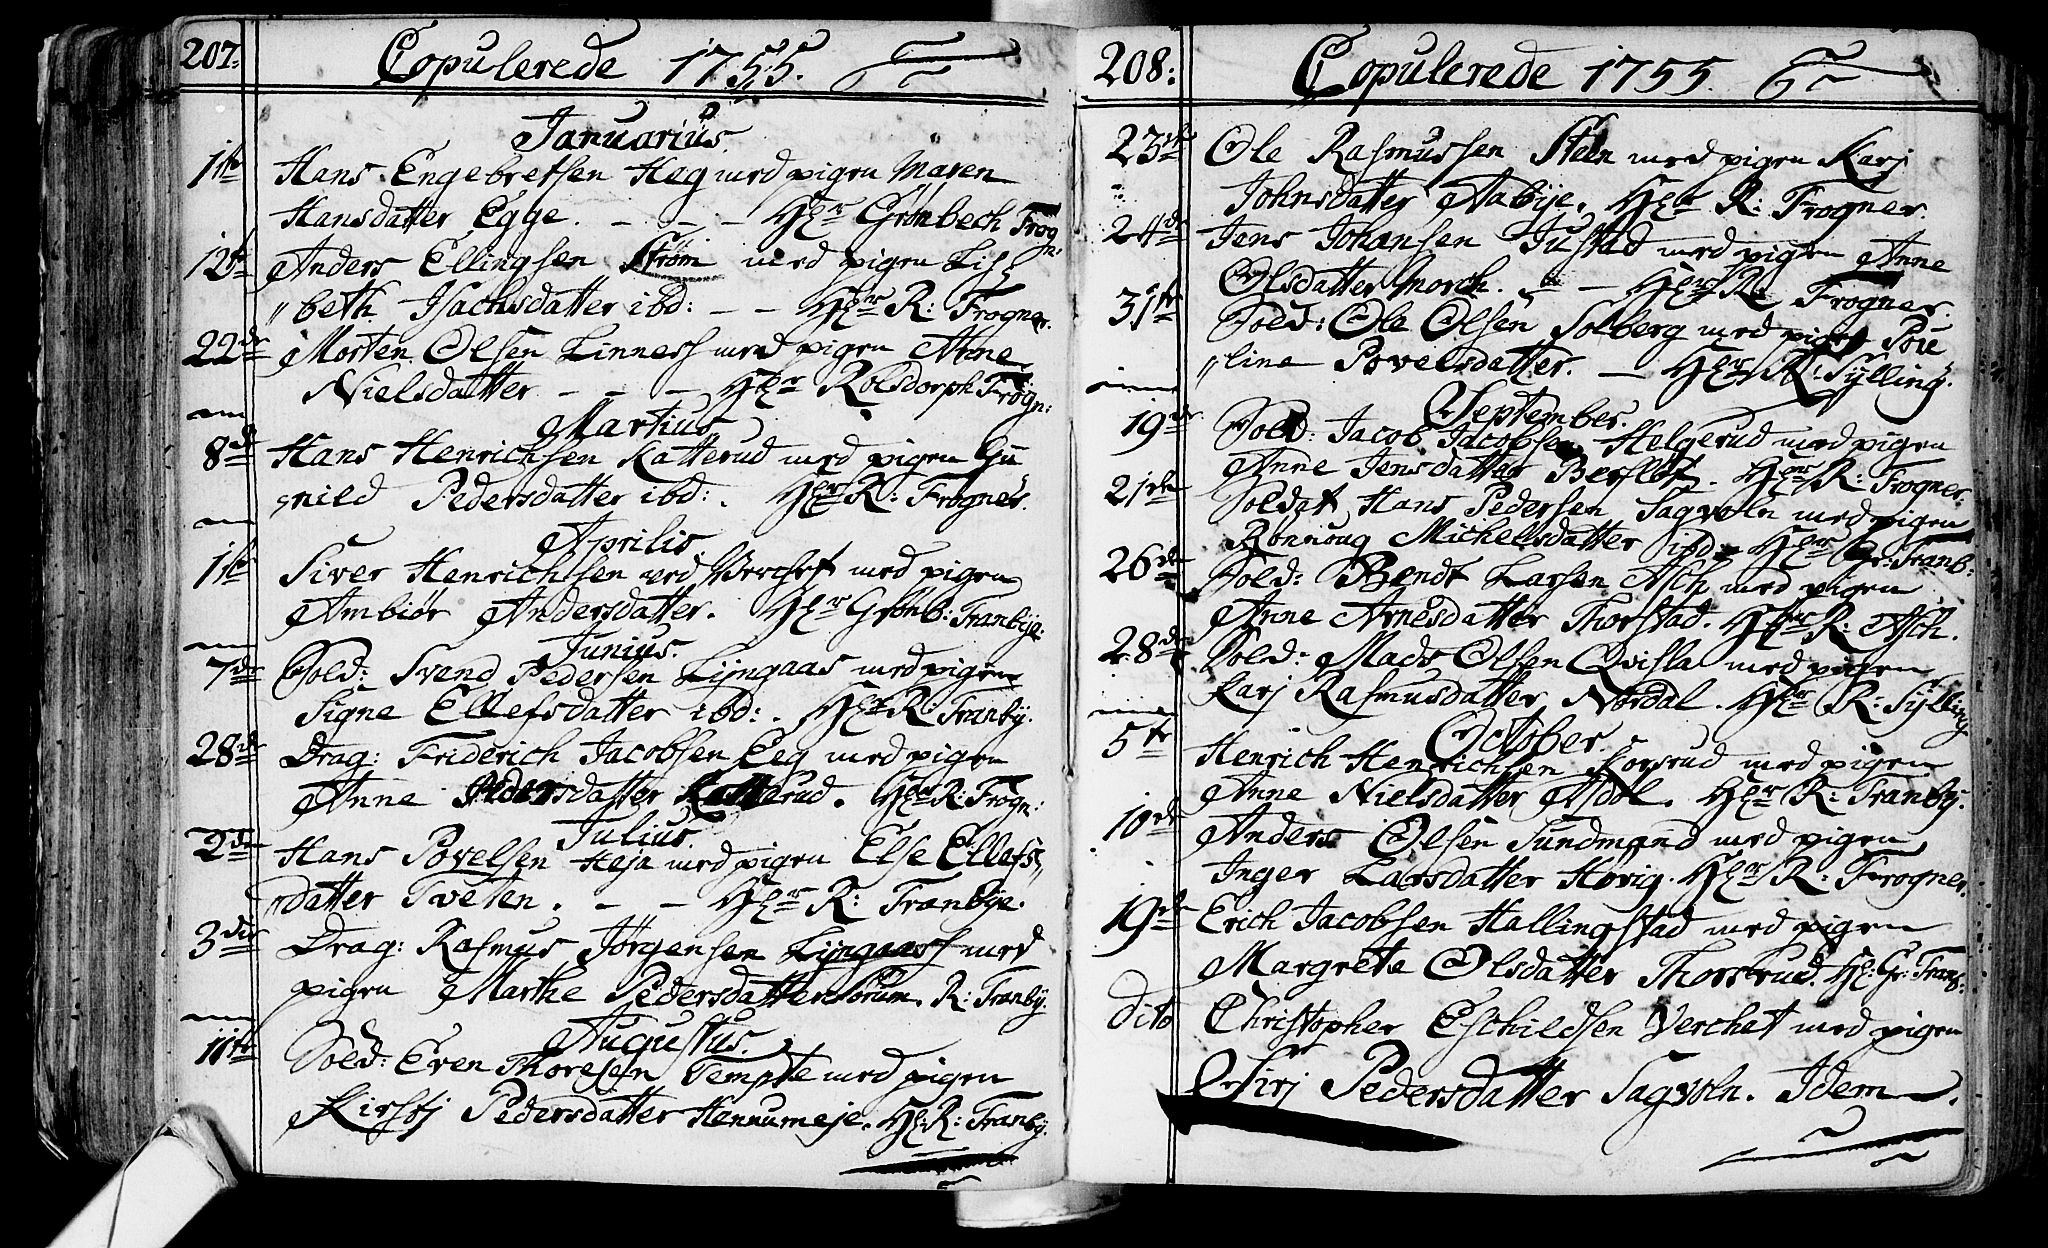 207.
Copulerede 1755.
Januarius.
1ste Hans Engebretsen Hag med pigen Maren
Hansdatter Egge. - - - Hr Grønbech Frogn:
12te Anders Ellingsen Strøm med pigen Lis
"beth Isachsdatter ibd: - - Hr R: Frogner.
22de Morten Olsen Linness med pigen Anne
Nielsdatter - - - Hr Rolsdorph Frogn:
Martius
8de Hans Henrichsen Katterud med pigen Gu
"nild Pedersdatter ibd: . Hr R: Frogner.
Aprilis.
1ste Siver Henrichsen ved Verchet med pigen
Ambiør Andersdatter. Hr Grønb: Franbye:
Junius.
7de Sold: Svend Pedersen Lijngaas med pigen
Signe Ellefsdatter ibd: . Hr R: Franby.
28de Drag: Friderich Jacobsen Eeg med pigen
Anne Pedersdatter Katterud. Hr R: Frogn:
Julius.
2den Hans Povelsen Heja med pigen Else Ellefs
"datter Tveten. - - Hr R: Franbye.
3die Drag: Rasmus Jørgensen Lijngaass med
pigen Marthe Pedersdatter Sørum. R: Franby.
Augustus.
11te Sold: Even Thoresen Tempte med pigen
Kirstj Pedersdatter Hennumeje. Hr R: Franby.
208:
Copulerede 1755.
23de Ole Rasmussen Steen med pigen Karj
Johnsdatter Aabÿe. Hr R: Frogner.
24de Jens Johansen Justad med pigen Anne
Olsdatter Morch. - - Hr R: Frogner.
31te Sold: Ole Olsen Solberg med pigen Pou
"line Povelsdatter. - Hr R: Sylling.
September.
19de Sold: Jacob Jacobsen Helgerud med pigen
Anne Jensdatter Berfløt. Hr R: Frogner.
21de Soldat Hans Pedersen Sagvoln med pigen
Rønnoug Michelsdatter ibd. Hr Gr: Franb:
26de Sold: Bendt Larsen Asch med pigen
Anne Arnesdatter Thorstad. Hr R: Asch.
28de Sold: Mads Olsen Qvisla med pigen
Karj Rasmusdatter Nordal. Hr R: Sylling
October.
5te Henrich Henrichsen Korsrud med pigen
Anne Nielsdatter Asdøl. Hr R: Franby.
10de Anders Olsen Sundmand med pigen
Inger Larsdatter Hørig. Hr R: Frogner.
19de Erich Jacobsen Hallingstad med pigen
Margrete Olsdatter Thorsrud. Hr: Gr: Franb:
dito Christopher Eschildsen Verchet med pigen
Sirj Pedersdatter Sagvoln. Idem.